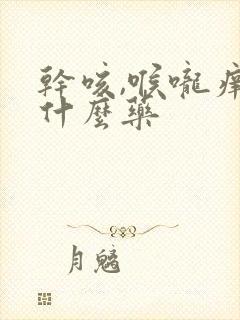 幹咳,喉嚨癢
什麼藥
月魑